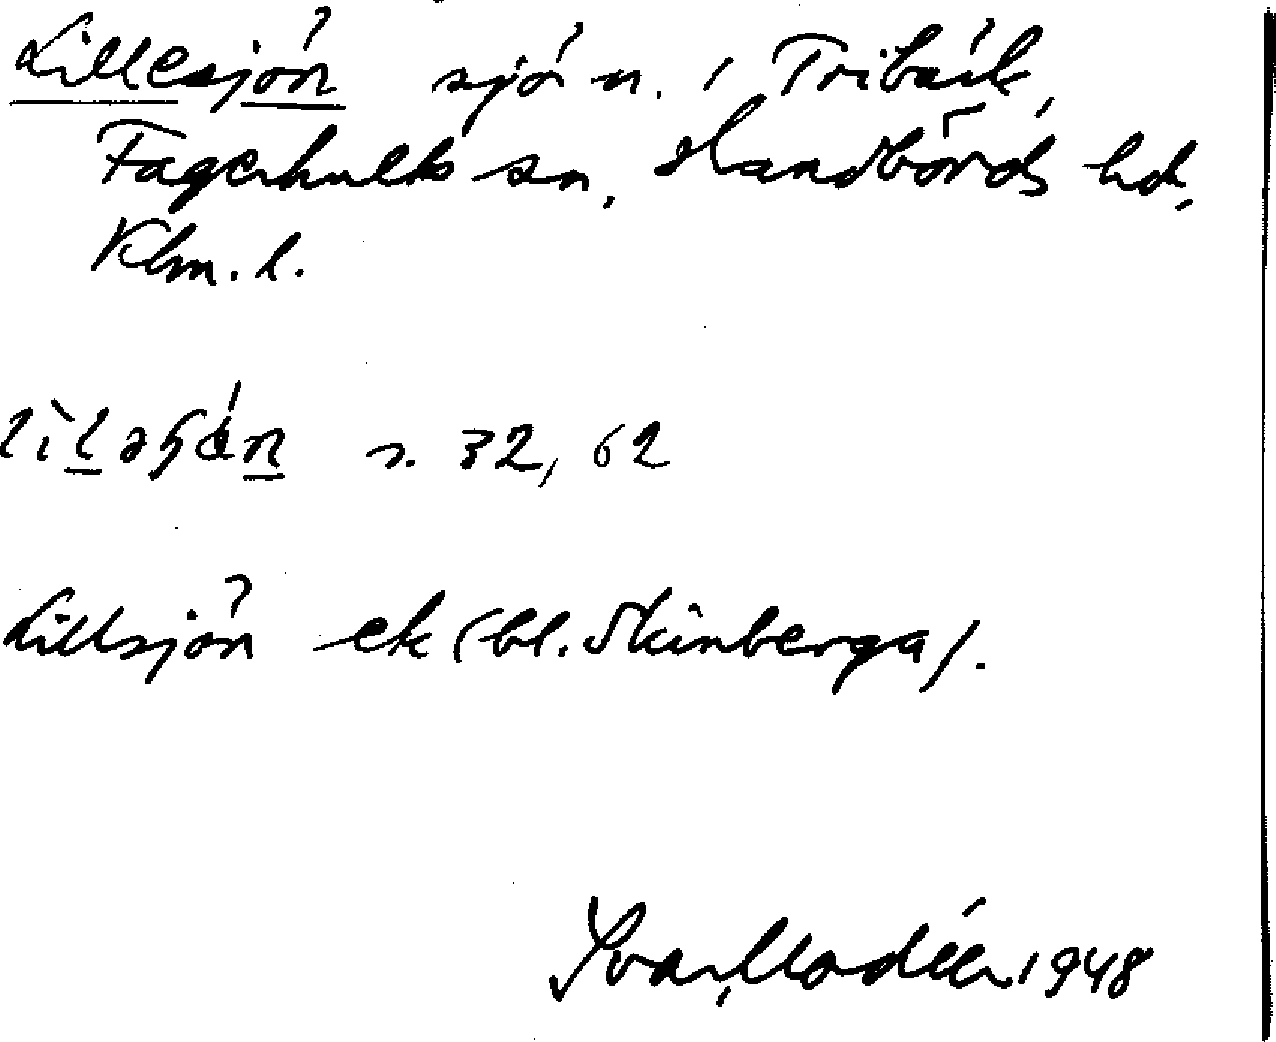 Lillesjön sjö n. i Tribäck,
Fagerhults sn, Handbörds hd,
Klm. l.
s. 32, 62
Lillsjön ek (bl. Skinberga).
Ivar Modéer 1948